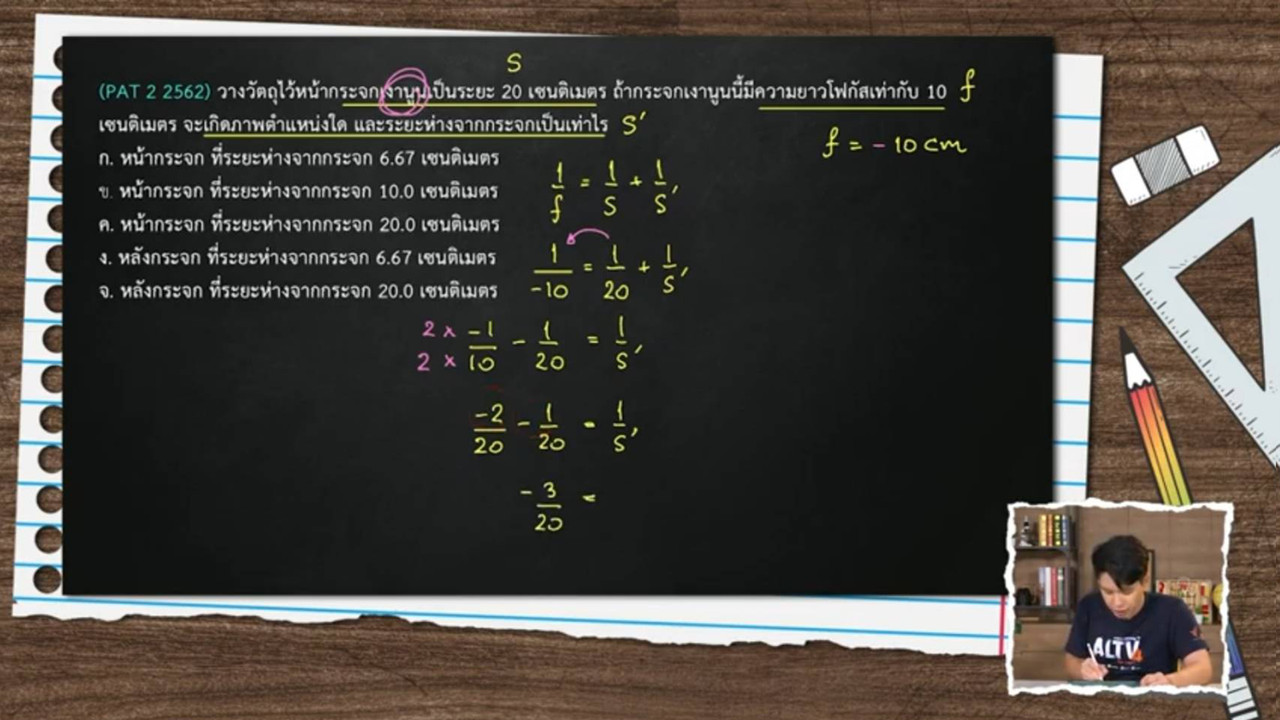 S
(PAT 2 2562) วางวัตถุไว้หน้ากระจกเงานูนเป็นระยะ 20 เซนติเมตร ถ้ากระจกเงานูนนี้มีความยาวโฟกัสเท่ากับ 10 f
เซนติเมตร จะเกิดภาพตำแหน่งใด และระยะห่างจากกระจกเป็นเท่าไร S'
f = - 10 cm
ก. หน้ากระจก ที่ระยะห่างจากกระจก 6.67 เซนติเมตร
ข. หน้ากระจก ที่ระยะห่างจากกระจก 10.0 เซนติเมตร
ค. หน้ากระจก ที่ระยะห่างจากกระจก 20.0 เซนติเมตร
ง. หลังกระจก ที่ระยะห่างจากกระจก 6.67 เซนติเมตร
จ. หลังกระจก ที่ระยะห่างจากกระจก 20.0 เซนติเมตร
1/f = 1/S + 1/S'
1/-10 = 1/20 + 1/S'
2 × -1 / 2 × 10 - 1/20 = 1/S'
-2/20 - 1/20 = 1/S'
-3/20 =
ALTV
4